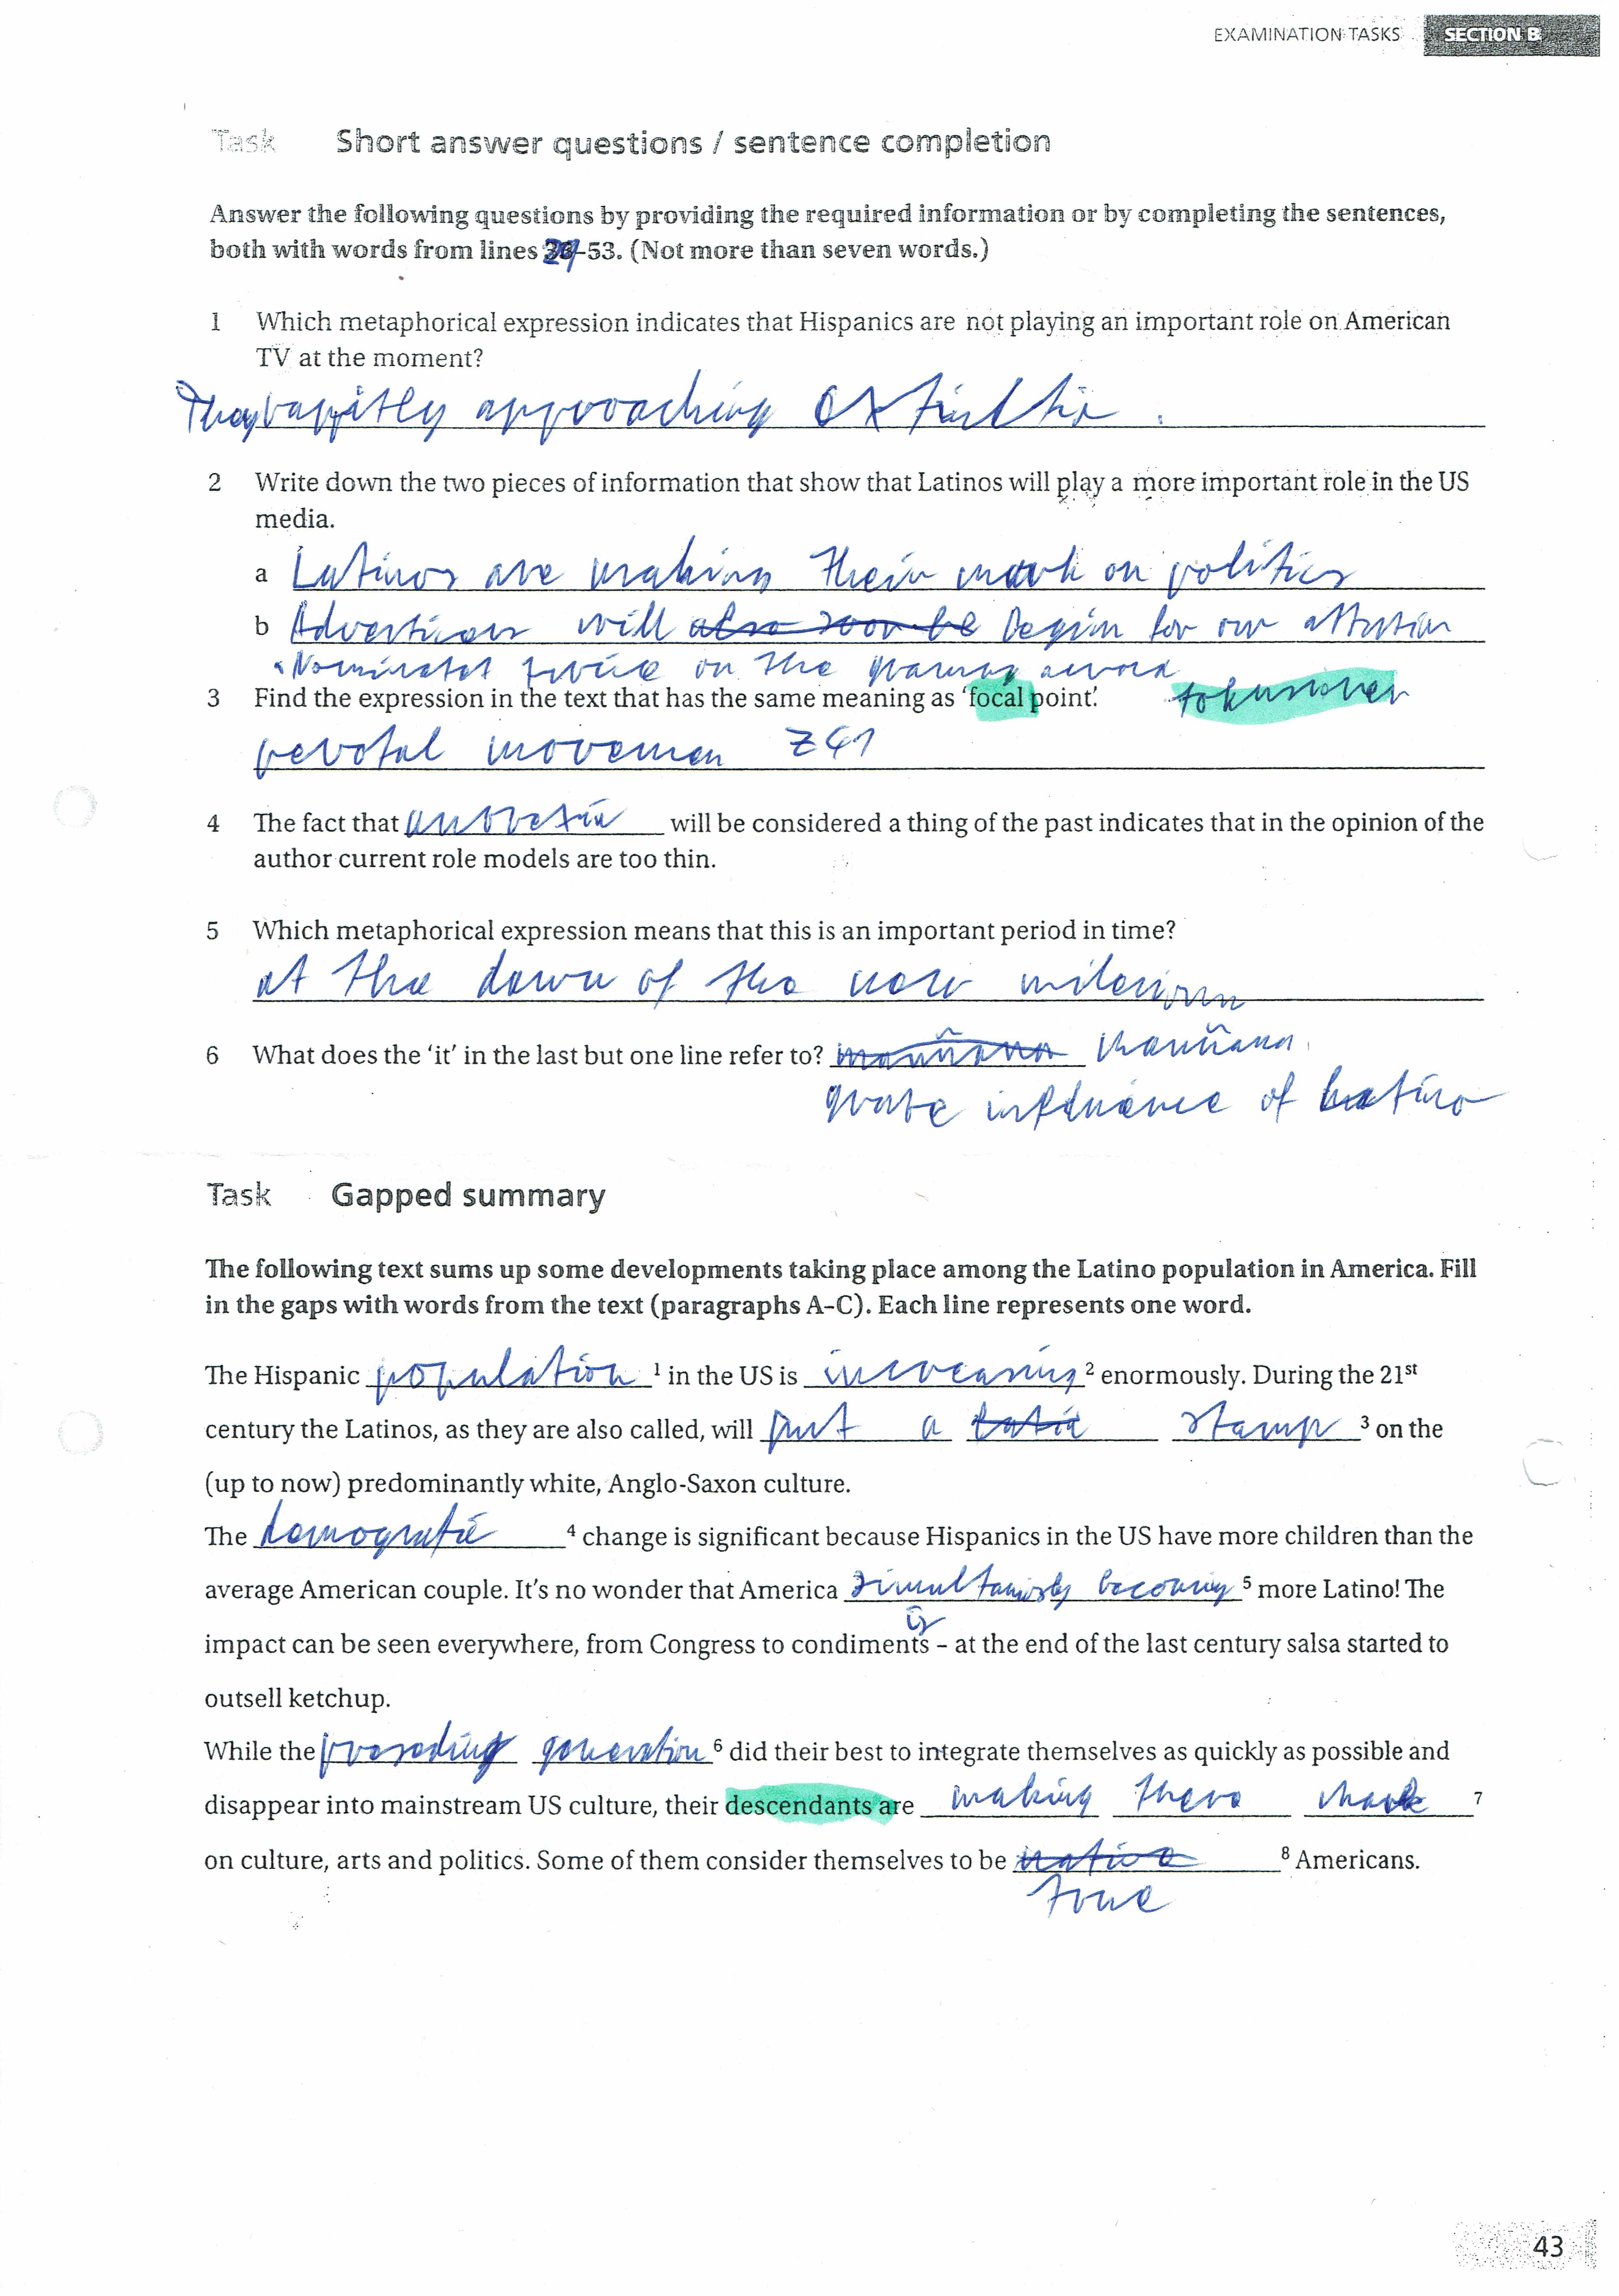 EXAMINATION TASKS SECTION B
Task Short answer questions / sentence completion
Answer the following questions by providing the required information or by completing the sentences,
both with words from lines 29-53. (Not more than seven words.)
1 Which metaphorical expression indicates that Hispanics are not playing an important role on American
TV at the moment?
They approaching
2 Write down the two pieces of information that show that Latinos will play a more important role in the US
media.
a Latinos are making their mark on politics
b Advertisers will also soon be begin for our attention
Nominated twice on the award
3 Find the expression in the text that has the same meaning as ‘focal point’.
pevotal movemen Z41
4 The fact that will be considered a thing of the past indicates that in the opinion of the
author current role models are too thin.
5 Which metaphorical expression means that this is an important period in time?
at the dawn of the new
6 What does the ‘it’ in the last but one line refer to? mañana mañana
influence of Latino
Task Gapped summary
The following text sums up some developments taking place among the Latino population in America. Fill
in the gaps with words from the text (paragraphs A–C). Each line represents one word.
The Hispanic population ¹ in the US is increasing ² enormously. During the 21st
century the Latinos, as they are also called, will put a stamp ³ on the
(up to now) predominantly white, Anglo-Saxon culture.
The demografic ⁴ change is significant because Hispanics in the US have more children than the
average American couple. It’s no wonder that America becoming ⁵ more Latino! The
is
impact can be seen everywhere, from Congress to condiments – at the end of the last century salsa started to
outsell ketchup.
While the generation ⁶ did their best to integrate themselves as quickly as possible and
disappear into mainstream US culture, their descendants are making there mark ⁷
on culture, arts and politics. Some of them consider themselves to be native ⁸ Americans.
true
43